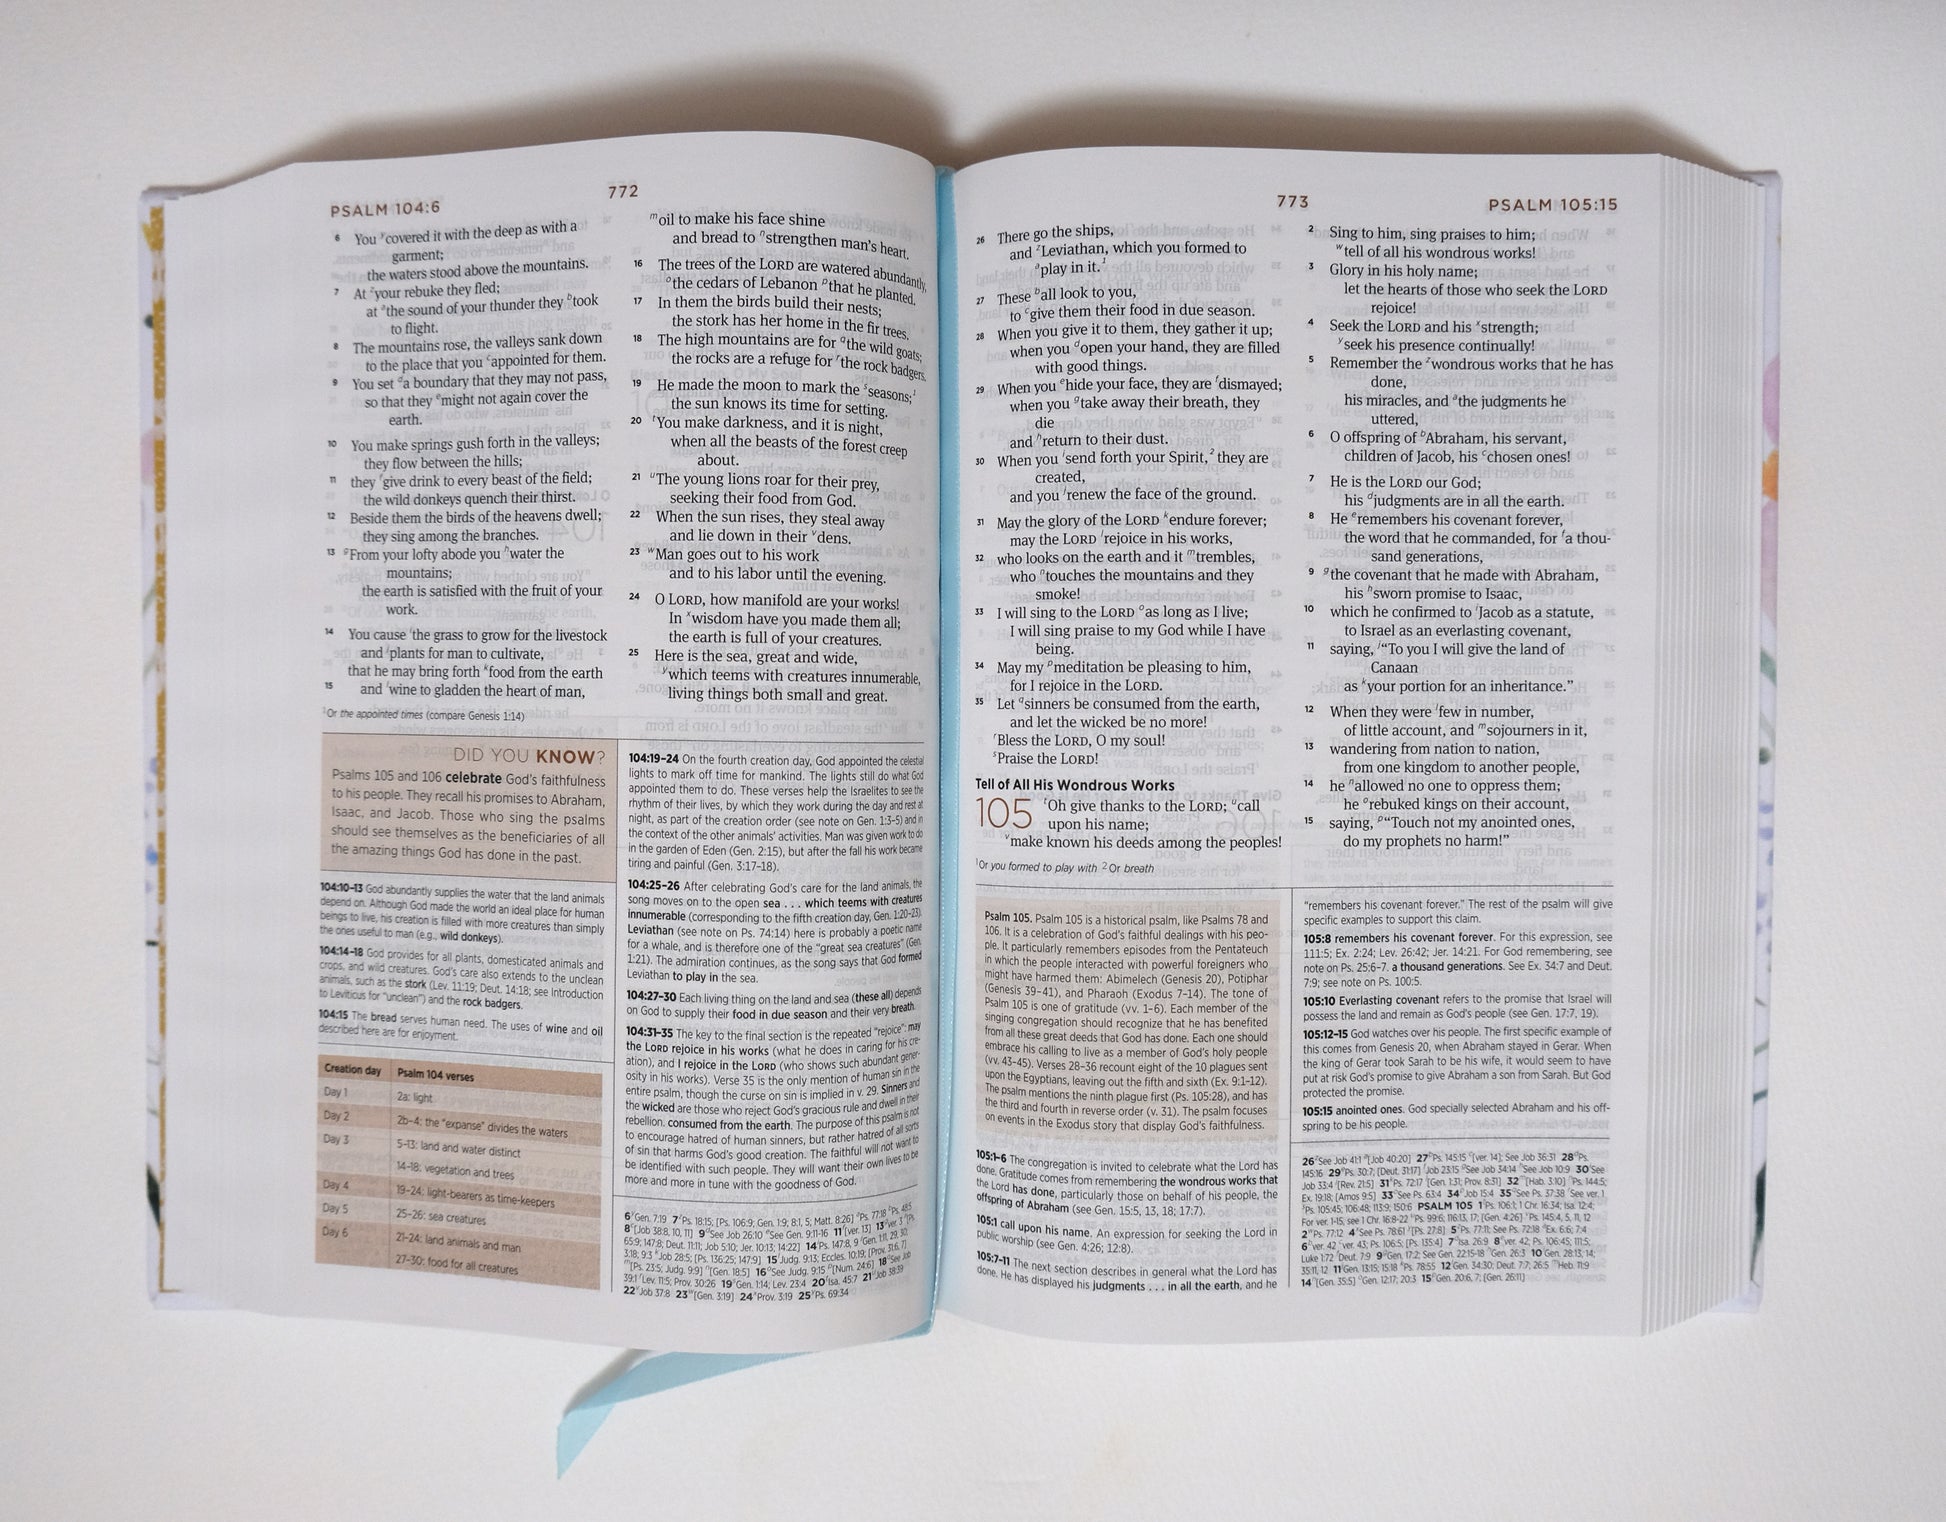 PSALM 104:6
772
6 You ʸcovered it with the deep as with a
garment;
the waters stood above the mountains.
7 At ᶻyour rebuke they fled;
at ᵃthe sound of your thunder they ᵇtook
to flight.
8 The mountains rose, the valleys sank down
to the place that you ᶜappointed for them.
9 You set ᵈa boundary that they may not pass,
so that they ᵉmight not again cover the
earth.
10 You make springs gush forth in the valleys;
they flow between the hills;
11 they ᶠgive drink to every beast of the field;
the wild donkeys quench their thirst.
12 Beside them the birds of the heavens dwell;
they sing among the branches.
13 ᵍFrom your lofty abode you ʰwater the
mountains;
the earth is satisfied with the fruit of your
work.
14 You cause ⁱthe grass to grow for the livestock
and ʲplants for man to cultivate,
that he may bring forth ᵏfood from the earth
15 and ˡwine to gladden the heart of man,
ᵐoil to make his face shine
and bread to ⁿstrengthen man's heart.
16 The trees of the LORD are watered abundantly,
ᵒthe cedars of Lebanon ᵖthat he planted.
17 In them the birds build their nests;
the stork has her home in the fir trees.
18 The high mountains are for ᑫthe wild goats;
the rocks are a refuge for ʳthe rock badgers.
19 He made the moon to mark the ˢseasons;¹
the sun knows its time for setting.
20 ᵗYou make darkness, and it is night,
when all the beasts of the forest creep
about.
21 ᵘThe young lions roar for their prey,
seeking their food from God.
22 When the sun rises, they steal away
and lie down in their ᵛdens.
23 ʷMan goes out to his work
and to his labor until the evening.
24 O LORD, how manifold are your works!
In ˣwisdom have you made them all;
the earth is full of your creatures.
25 Here is the sea, great and wide,
ʸwhich teems with creatures innumerable,
living things both small and great.
¹Or the appointed times (compare Genesis 1:14)
DID YOU KNOW?
Psalms 105 and 106 celebrate God's faithfulness
to his people. They recall his promises to Abraham,
Isaac, and Jacob. Those who sing the psalms
should see themselves as the beneficiaries of all
the amazing things God has done in the past.
104:10–13 God abundantly supplies the water that the land animals
depend on. Although God made the world an ideal place for human
beings to live, his creation is filled with more creatures than simply
the ones useful to man (e.g., wild donkeys).
104:14–18 God provides for all plants, domesticated animals and
crops, and wild creatures. God's care also extends to the unclean
animals, such as the stork (Lev. 11:19; Deut. 14:18; see Introduction
to Leviticus for "unclean") and the rock badgers.
104:15 The bread serves human need. The uses of wine and oil
described here are for enjoyment.
Creation day Psalm 104 verses
Day 1 2a: light
Day 2 2b–4: the "expanse" divides the waters
Day 3 5–13: land and water distinct
14–18: vegetation and trees
Day 4 19–24: light-bearers as time-keepers
Day 5 25–26: sea creatures
Day 6 21–24: land animals and man
27–30: food for all creatures
104:19–24 On the fourth creation day, God appointed the celestial
lights to mark off time for mankind. The lights still do what God
appointed them to do. These verses help the Israelites to see the
rhythm of their lives, by which they work during the day and rest at
night, as part of the creation order (see note on Gen. 1:3–5) and in
the context of the other animals' activities. Man was given work to do
in the garden of Eden (Gen. 2:15), but after the fall his work became
tiring and painful (Gen. 3:17–18).
104:25–26 After celebrating God's care for the land animals, the
song moves on to the open sea . . . which teems with creatures
innumerable (corresponding to the fifth creation day, Gen. 1:20–23).
Leviathan (see note on Ps. 74:14) here is probably a poetic name
for a whale, and is therefore one of the "great sea creatures" (Gen.
1:21). The admiration continues, as the song says that God formed
Leviathan to play in the sea.
104:27–30 Each living thing on the land and sea (these all) depends
on God to supply their food in due season and their very breath.
104:31–35 The key to the final section is the repeated "rejoice": may
the LORD rejoice in his works (what he does in caring for his cre-
ation), and I rejoice in the LORD (who shows such abundant gener-
osity in his works). Verse 35 is the only mention of human sin in the
entire psalm, though the curse on sin is implied in v. 29. Sinners and
the wicked are those who reject God's gracious rule and dwell in their
rebellion. consumed from the earth. The purpose of this psalm is not
to encourage hatred of human sinners, but rather hatred of all sorts
of sin that harms God's good creation. The faithful will not want to
be identified with such people. They will want their own lives to be
more and more in tune with the goodness of God.
6 Gen. 7:19 7 Ps. 18:15; [Ps. 106:9; Gen. 1:9; 8:1, 5; Matt. 8:26] Ps. 77:18 Ps. 48:5
8 [Job 38:8, 10, 11] 9 See Job 26:10 See Gen. 9:11-16 11 [ver. 13] 13 ver. 3 [Ps.
65:9; 147:8; Deut. 11:11; Job 5:10; Jer. 10:13; 14:22] 14 Ps. 147:8, 9 Gen. 1:11, 29, 30;
3:18; 9:3 Job 28:5; [Ps. 136:25; 147:9] 15 Judg. 9:13; Eccles. 10:19; [Prov. 31:6, 7]
[Ps. 23:5; Judg. 9:9] [Gen. 18:5] 16 See Judg. 9:15 [Num. 24:6] 18 See Job
39:1 Lev. 11:5; Prov. 30:26 19 Gen. 1:14; Lev. 23:4 20 Isa. 45:7 21 Job 38:39
22 Job 37:8 23 [Gen. 3:19] 24 Prov. 3:19 25 Ps. 69:34
773
PSALM 105:15
26 There go the ships,
and ᶻLeviathan, which you formed to
ᵃplay in it.¹
27 These ᵇall look to you,
to ᶜgive them their food in due season.
28 When you give it to them, they gather it up;
when you ᵈopen your hand, they are filled
with good things.
29 When you ᵉhide your face, they are ᶠdismayed;
when you ᵍtake away their breath, they
die
and ʰreturn to their dust.
30 When you ⁱsend forth your Spirit,² they are
created,
and you ʲrenew the face of the ground.
31 May the glory of the LORD ᵏendure forever;
may the LORD ˡrejoice in his works,
32 who looks on the earth and it ᵐtrembles,
who ⁿtouches the mountains and they
smoke!
33 I will sing to the LORD ᵒas long as I live;
I will sing praise to my God while I have
being.
34 May my ᵖmeditation be pleasing to him,
for I rejoice in the LORD.
35 Let ᑫsinners be consumed from the earth,
and let the wicked be no more!
ʳBless the LORD, O my soul!
ˢPraise the LORD!
Tell of All His Wondrous Works
105 ᵗOh give thanks to the LORD; ᵘcall
upon his name;
ᵛmake known his deeds among the peoples!
2 Sing to him, sing praises to him;
ʷtell of all his wondrous works!
3 Glory in his holy name;
let the hearts of those who seek the LORD
rejoice!
4 Seek the LORD and his ˣstrength;
ʸseek his presence continually!
5 Remember the ᶻwondrous works that he has
done,
his miracles, and ᵃthe judgments he
uttered,
6 O offspring of ᵇAbraham, his servant,
children of Jacob, his ᶜchosen ones!
7 He is the LORD our God;
his ᵈjudgments are in all the earth.
8 He ᵉremembers his covenant forever,
the word that he commanded, for ᶠa thou-
sand generations,
9 ᵍthe covenant that he made with Abraham,
his ʰsworn promise to Isaac,
10 which he confirmed to ⁱJacob as a statute,
to Israel as an everlasting covenant,
11 saying, ʲ"To you I will give the land of
Canaan
as ᵏyour portion for an inheritance."
12 When they were ˡfew in number,
of little account, and ᵐsojourners in it,
13 wandering from nation to nation,
from one kingdom to another people,
14 he ⁿallowed no one to oppress them;
he ᵒrebuked kings on their account,
15 saying, ᵖ"Touch not my anointed ones,
do my prophets no harm!"
¹Or you formed to play with ²Or breath
Psalm 105. Psalm 105 is a historical psalm, like Psalms 78 and
106. It is a celebration of God's faithful dealings with his peo-
ple. It particularly remembers episodes from the Pentateuch
in which the people interacted with powerful foreigners who
might have harmed them: Abimelech (Genesis 20), Potiphar
(Genesis 39–41), and Pharaoh (Exodus 7–14). The tone of
Psalm 105 is one of gratitude (vv. 1–6). Each member of the
singing congregation should recognize that he has benefited
from all these great deeds that God has done. Each one should
embrace his calling to live as a member of God's holy people
(vv. 43–45). Verses 28–36 recount eight of the 10 plagues sent
upon the Egyptians, leaving out the fifth and sixth (Ex. 9:1–12).
The psalm mentions the ninth plague first (Ps. 105:28), and has
the third and fourth in reverse order (v. 31). The psalm focuses
on events in the Exodus story that display God's faithfulness.
105:1–6 The congregation is invited to celebrate what the Lord has
done. Gratitude comes from remembering the wondrous works that
the Lord has done, particularly those on behalf of his people, the
offspring of Abraham (see Gen. 15:5, 13, 18; 17:7).
105:1 call upon his name. An expression for seeking the Lord in
public worship (see Gen. 4:26; 12:8).
105:7–11 The next section describes in general what the Lord has
done. He has displayed his judgments . . . in all the earth, and he
"remembers his covenant forever." The rest of the psalm will give
specific examples to support this claim.
105:8 remembers his covenant forever. For this expression, see
111:5; Ex. 2:24; Lev. 26:42; Jer. 14:21. For God remembering, see
note on Ps. 25:6–7. a thousand generations. See Ex. 34:7 and Deut.
7:9; see note on Ps. 100:5.
105:10 Everlasting covenant refers to the promise that Israel will
possess the land and remain as God's people (see Gen. 17:7, 19).
105:12–15 God watches over his people. The first specific example of
this comes from Genesis 20, when Abraham stayed in Gerar. When
the king of Gerar took Sarah to be his wife, it would seem to have
put at risk God's promise to give Abraham a son from Sarah. But God
protected the promise.
105:15 anointed ones. God specially selected Abraham and his off-
spring to be his people.
26 See Job 41:1 [Job 40:20] 27 Ps. 145:15 [ver. 14]; See Job 36:31 28 Ps.
145:16 29 Ps. 30:7; [Deut. 31:17] Job 23:15 See Job 34:14 See Job 10:9 30 See
Job 33:4 [Rev. 21:5] 31 Ps. 72:17 [Gen. 1:31; Prov. 8:31] 32 [Hab. 3:10] Ps. 144:5;
Ex. 19:18; [Amos 9:5] 33 See Ps. 63:4 34 Job 15:4 35 See Ps. 37:38 See ver. 1
Ps. 105:45; 106:48; 113:9; 150:6 PSALM 105 1 Ps. 106:1; 1 Chr. 16:34; Isa. 12:4;
For ver. 1-15, see 1 Chr. 16:8-22 Ps. 99:6; 116:13, 17; [Gen. 4:26] Ps. 145:4, 5, 11, 12
2 Ps. 77:12 4 See Ps. 78:61 [Ps. 27:8] 5 Ps. 77:11; See Ps. 72:18 Ex. 6:6; 7:4
6 ver. 42 ver. 43; Ps. 106:5; [Ps. 135:4] 7 Isa. 26:9 8 ver. 42; Ps. 106:45; 111:5;
Luke 1:72 Deut. 7:9 9 Gen. 17:2; See Gen. 22:15-18 Gen. 26:3 10 Gen. 28:13, 14;
35:11, 12 11 Gen. 13:15; 15:18 Ps. 78:55 12 Gen. 34:30; Deut. 7:7; 26:5 Heb. 11:9
14 [Gen. 35:5] Gen. 12:17; 20:3 15 Gen. 20:6, 7; [Gen. 26:11]